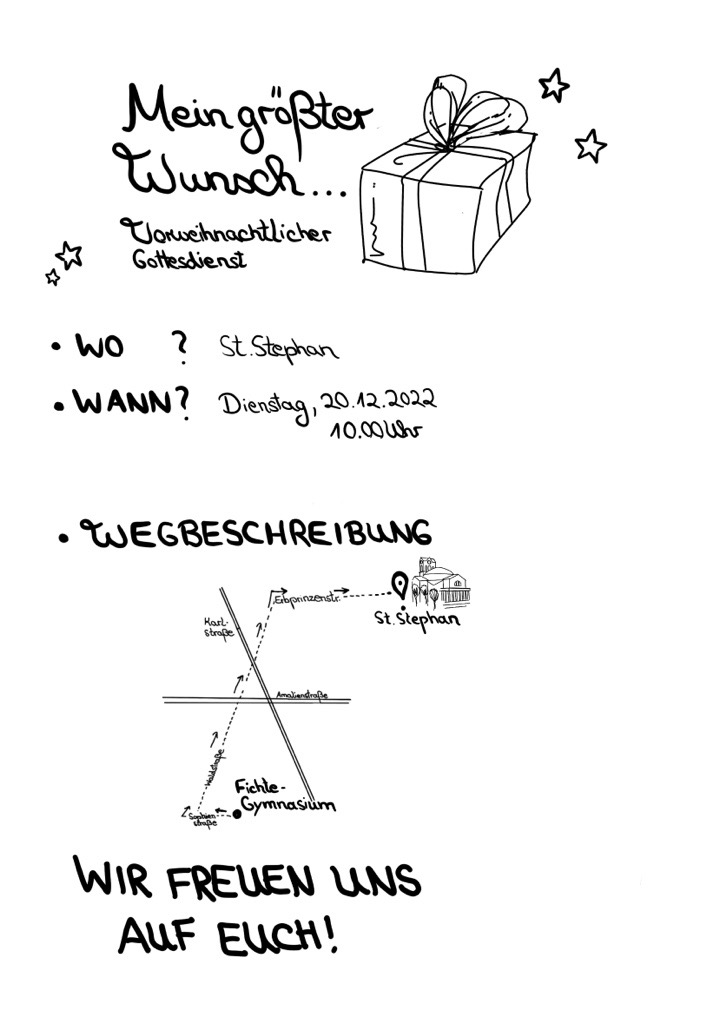 Mein größter
Wunsch...
Vorweihnachtlicher
Gottesdienst
• WO ? St. Stephan
• WANN? Dienstag, 20.12.2022
10.00 Uhr
• WEGBESCHREIBUNG
Erbprinzenstr.
St. Stephan
Karl-
straße
Amalienstraße
Waldstraße
Fichte-
Gymnasium
Sophien-
straße
WIR FREUEN UNS
AUF EUCH!